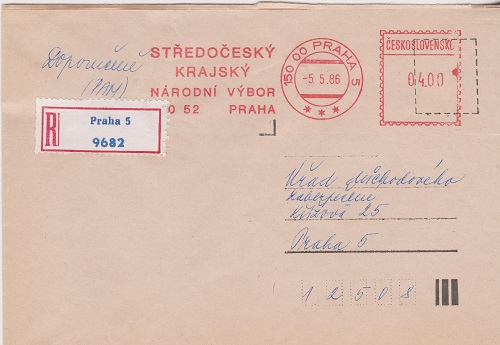 Doporučeně
(PAM)
STŘEDOČESKÝ
KRAJSKÝ
NÁRODNÍ VÝBOR
0 52 PRAHA
150 00 PRAHA 5
-5.5.86
ČESKOSLOVENSKO
04.00
R
Praha 5
9682
Úřad důchodového
zabezpečení
Křížová 25
Praha 5
12508